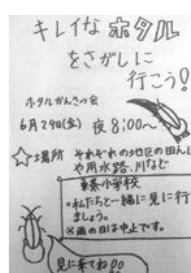 キレイな ホタル
をさがしに
行こう!
ホタルかんさつ会
6月29日(金) 夜8:00~
☆場所 それぞれの地区の田んぼ
や用水路、川など
小学校
・私たちと一緒に見に行き
ましょう。
※雨の日は中止です。
見に来てね